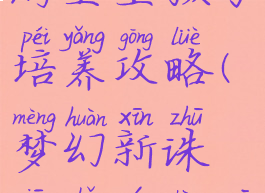 péi yǎng gōng lüè
培养攻略(
mèng huàn xīn zhū
梦幻新诛